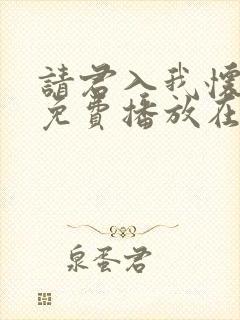 請君入我懷
免費播放在
泉蛋君